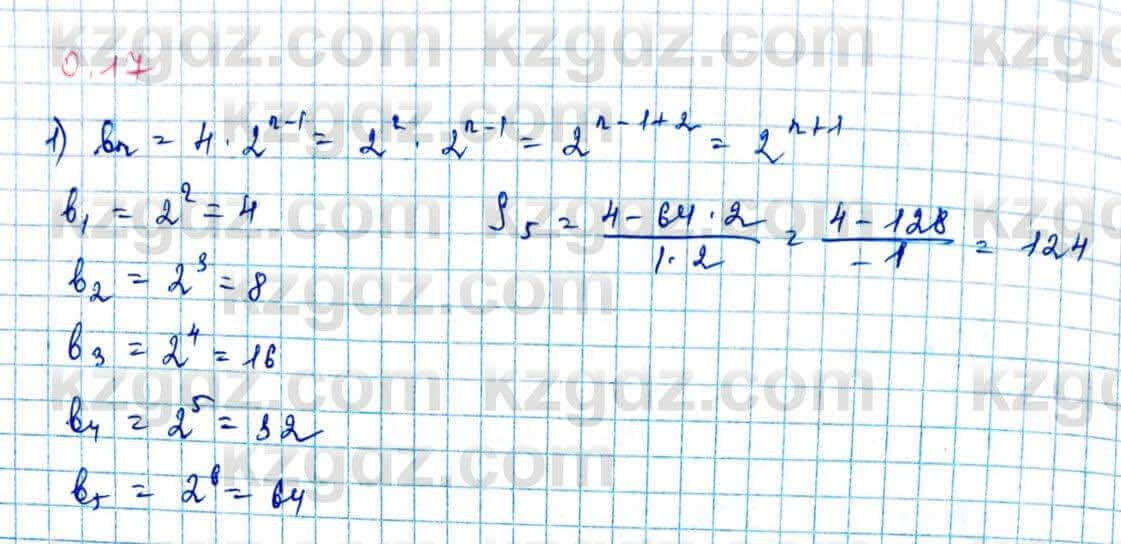 kzgdz.com kzgdz.com kzgdz
0.17
kzgdz.com
1) bn = 4 · 2^{n-1} = 2^2 · 2^{n-1} = 2^{n-1+2} = 2^{n+1}
kzgdz.com kzgdz.com kzgdz
b_1 = 2^2 = 4
S_5 = \frac{4 - 64 · 2}{1 · 2} = \frac{4 - 128}{-1} = 124
kzgdz.com
b_2 = 2^3 = 8
b_3 = 2^4 = 16
kzgdz.com kzgdz.com kzgdz
b_4 = 2^5 = 32
kzgdz.com
b_5 = 2^6 = 64